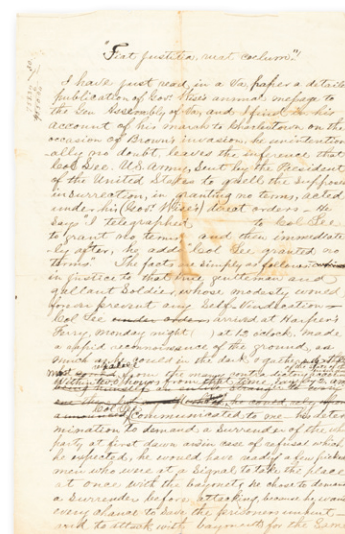 "Fiat justitia, ruat coelum."
I have just read, in a Va. paper a detailed
publication of Gov Wise's annual message to
the Gen Assembly of Va, and I find in his
account of his march to Charlestown on the
occasion of Brown's invasion, he unintention
-ally, no doubt, leaves the inference that
Col Lee U.S. Army, sent by the President
of the United States to quell the supposed
insurrection, in granting no terms, acted
under his (Gov Wise's) direct orders – He
says "I telegraphed to Col Lee
to grant no terms, and then immediate
-ly after, he said Col Lee granted no
terms" The fact is simply as follows
in justice to that true gentleman and
gallant Soldier, whose modesty would
forever prevent any Self-vindication –
Col Lee under orders arrived at Harper's
Ferry, Monday night ( ) at 12 o'clock, made
a rapid reconnoissance of the ground, as
much as he could in the dark, gathered
from the many contradictory
within two hours from that time,
Col Lee communicated to me his deter
mination to demand a surrender of the whole
party at first dawn and in case of refusal which
he expected, he would have ready a few picked
men who were at a signal to take the place
at once with the bayonet; he chose to demand
a surrender before attacking, because he wanted
every chance to save the prisoners unhurt –
and to attack with bayonets for the same